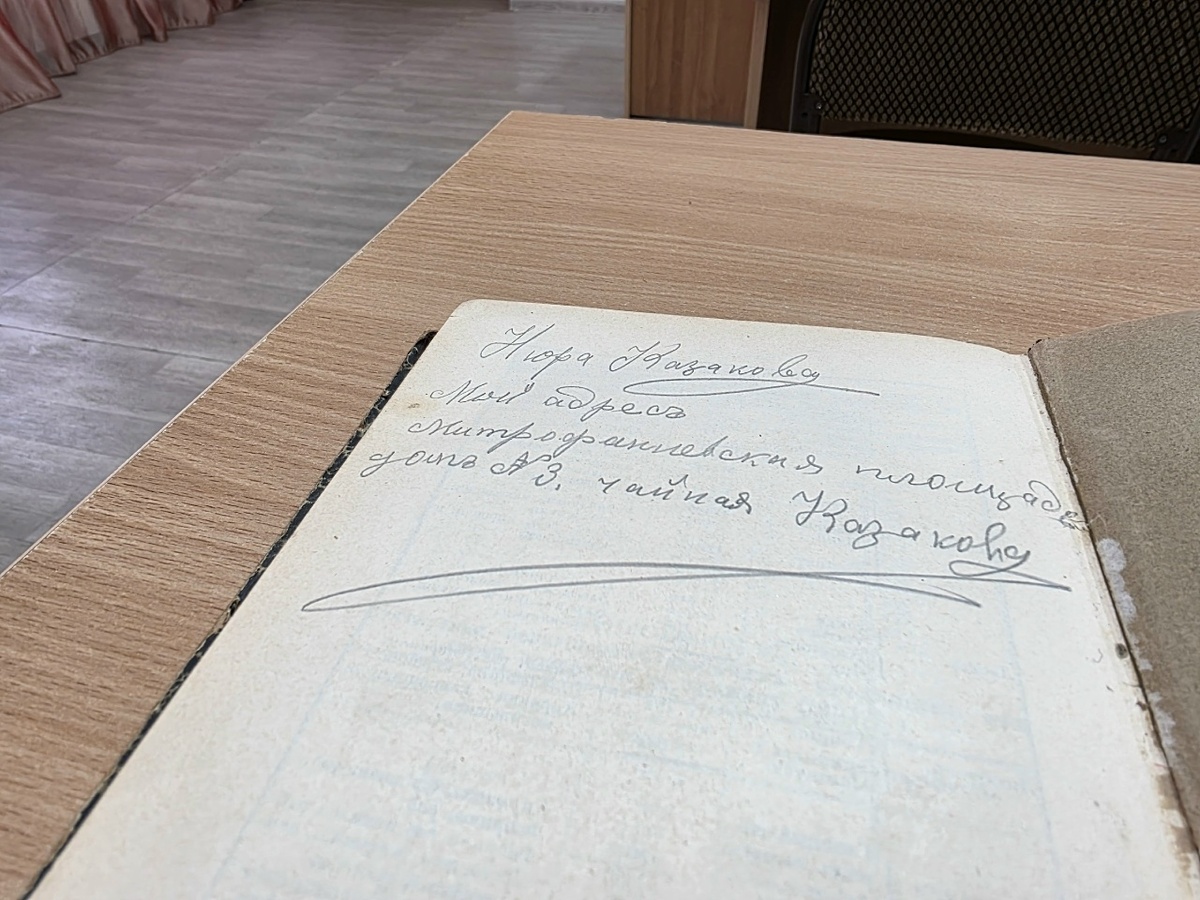 Нюра Казакова
Мой адресъ
Митрофаниевская площадь
домъ № 3. чайная Казакова